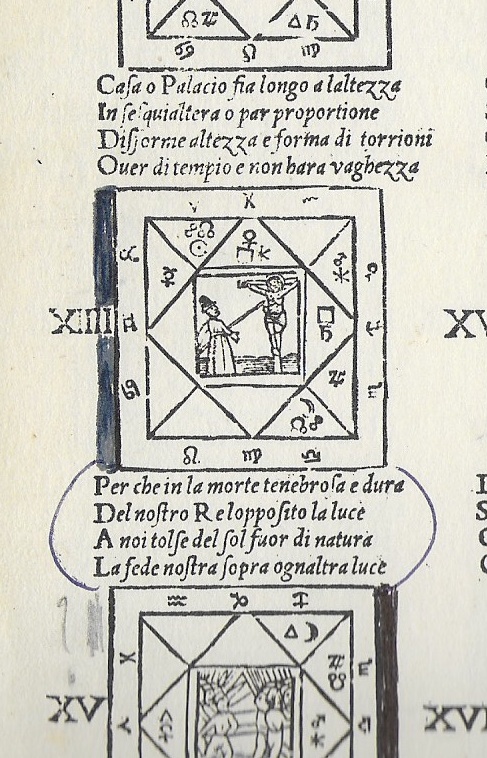 Casa o Palacio fia longo a laltezza
In sesquialtera o par proportione
Disforme altezza e forma di torrioni
Ouer di tempio e non hara vaghezza
XIIII
XV
Per che in la morte tenebrosa e dura
Del nostro Re lopposito la luce
A noi tolse del sol fuor di natura
La fede nostra sopra ognaltra luce
XV
XVI